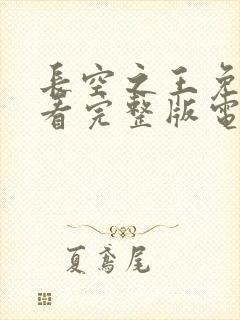 長空之王免
看完整版電
夏鳶尾